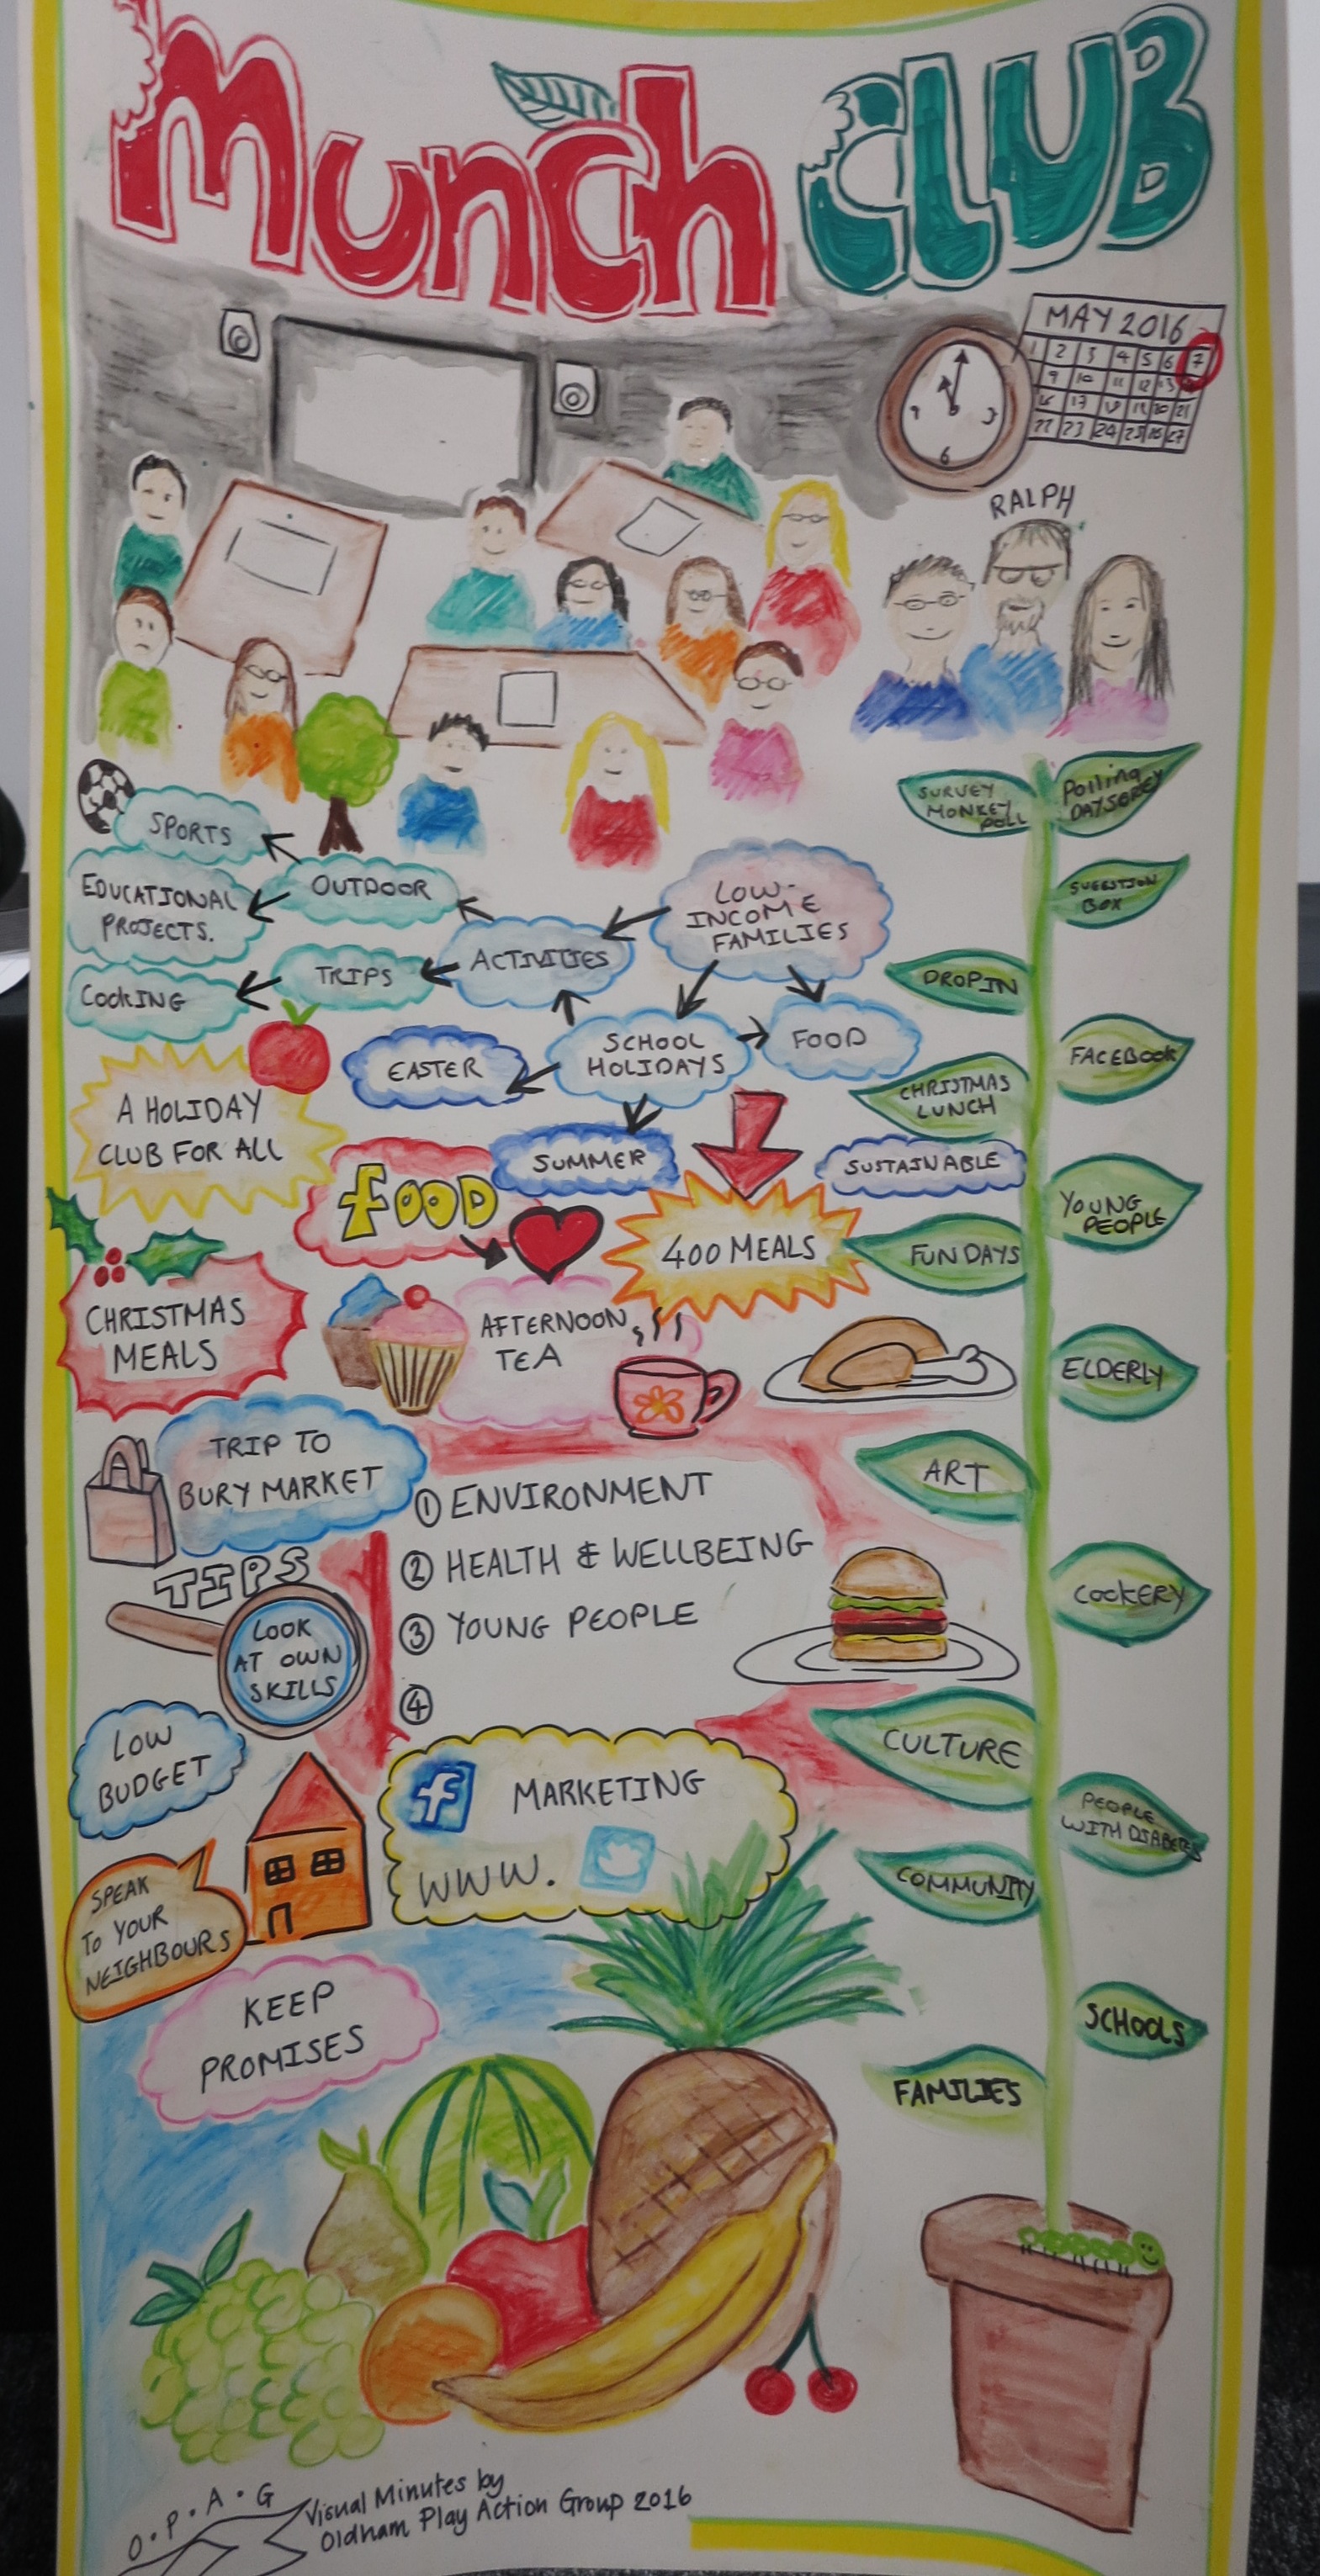 Munch CLUB
MAY 2016
1 2 3 4 5 6 7
9 10 11 12 13
16 17 18 19 20 21
22 23 24 25 26 27
9 3
6
RALPH
SURVEY
MONKEY
POLL
Polling
SUGESTION
BOX
DROP IN
FACEBOOK
CHRISTMAS
LUNCH
YOUNG
PEOPLE
FUN DAYS
ELDERLY
ART
COOKERY
CULTURE
PEOPLE
WITH DIABETES
COMMUNITY
SCHOOLS
FAMILIES
SPORTS
EDUCATIONAL
PROJECTS.
OUTDOOR
LOW-
INCOME
FAMILIES
ACTIVITIES
TRIPS
COOKING
SCHOOL
HOLIDAYS
FOOD
EASTER
A HOLIDAY
CLUB FOR ALL
SUMMER
SUSTAINABLE
FOOD
400 MEALS
CHRISTMAS
MEALS
AFTERNOON
TEA
TRIP TO
BURY MARKET
① ENVIRONMENT
② HEALTH & WELLBEING
③ YOUNG PEOPLE
④
TIPS
LOOK
AT OWN
SKILLS
LOW
BUDGET
f MARKETING
WWW.
SPEAK
TO YOUR
NEIGHBOURS
KEEP
PROMISES
O.P.A.G
Visual Minutes by
Oldham Play Action Group 2016